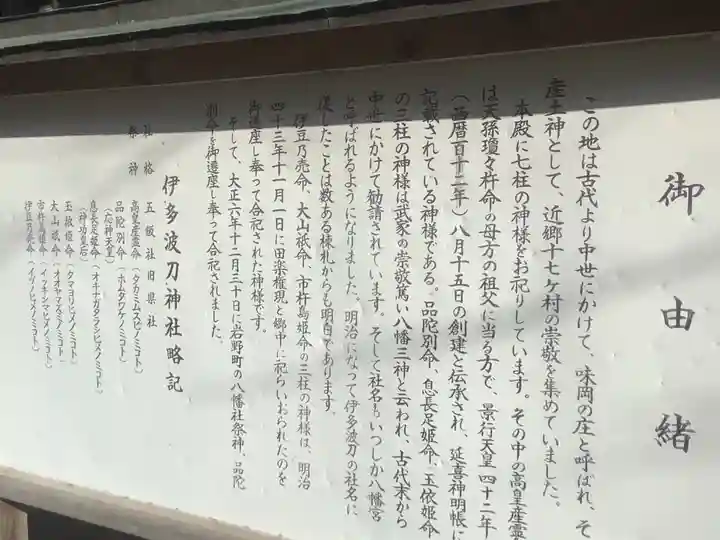 御由緒
この地は古代より中世にかけて、味岡の庄と呼ばれ、そ
産土神として、近郷十七ヶ村の崇敬を集めていました。
本殿に七柱の神様をお祀りしています。その中の高皇産霊
は天孫瓊々杵命の母方の祖父に当る方で、景行天皇四十二年
(西暦百十二年)八月十五日の創建と伝承され、延喜神明帳に
記載されている神様である。品陀別命、息長足姫命、玉依姫命
の三柱の神様は武家の崇敬篤い八幡三神と云われ、古代末から
中世にかけて勧請されています。そして社名もいつしか八幡宮
と呼ばれるようになりました。明治になって伊多波刀の社名に
復したことは数ある棟札からも明白であります。
伊豆乃売命、大山祇命、市杵島姫命の三柱の神様は、明治
四十三年十一月一日に田楽権現と郷中に祀らいおられたのを
御遷座し奉って合祀された神様です。
そして、大正六年十二月三十日に岩野町の八幡社祭神、品陀
別命を御遷座し奉って合祀されました。
伊多波刀神社略記
社格 五級社旧県社
祭神 高皇産霊命(タカミムスビノミコト)
品陀別命(ホムタワケノミコト)
(応神天皇)
息長足姫命(オキナガタラシヒメノミコト)
(神功皇后)
玉依姫命(タマヨリヒメノミコト)
大山祇命(オオヤマズミノミコト)
市杵島姫命(イツキシマヒメノミコト)
伊豆乃売命(イヅノヒメノミコト)